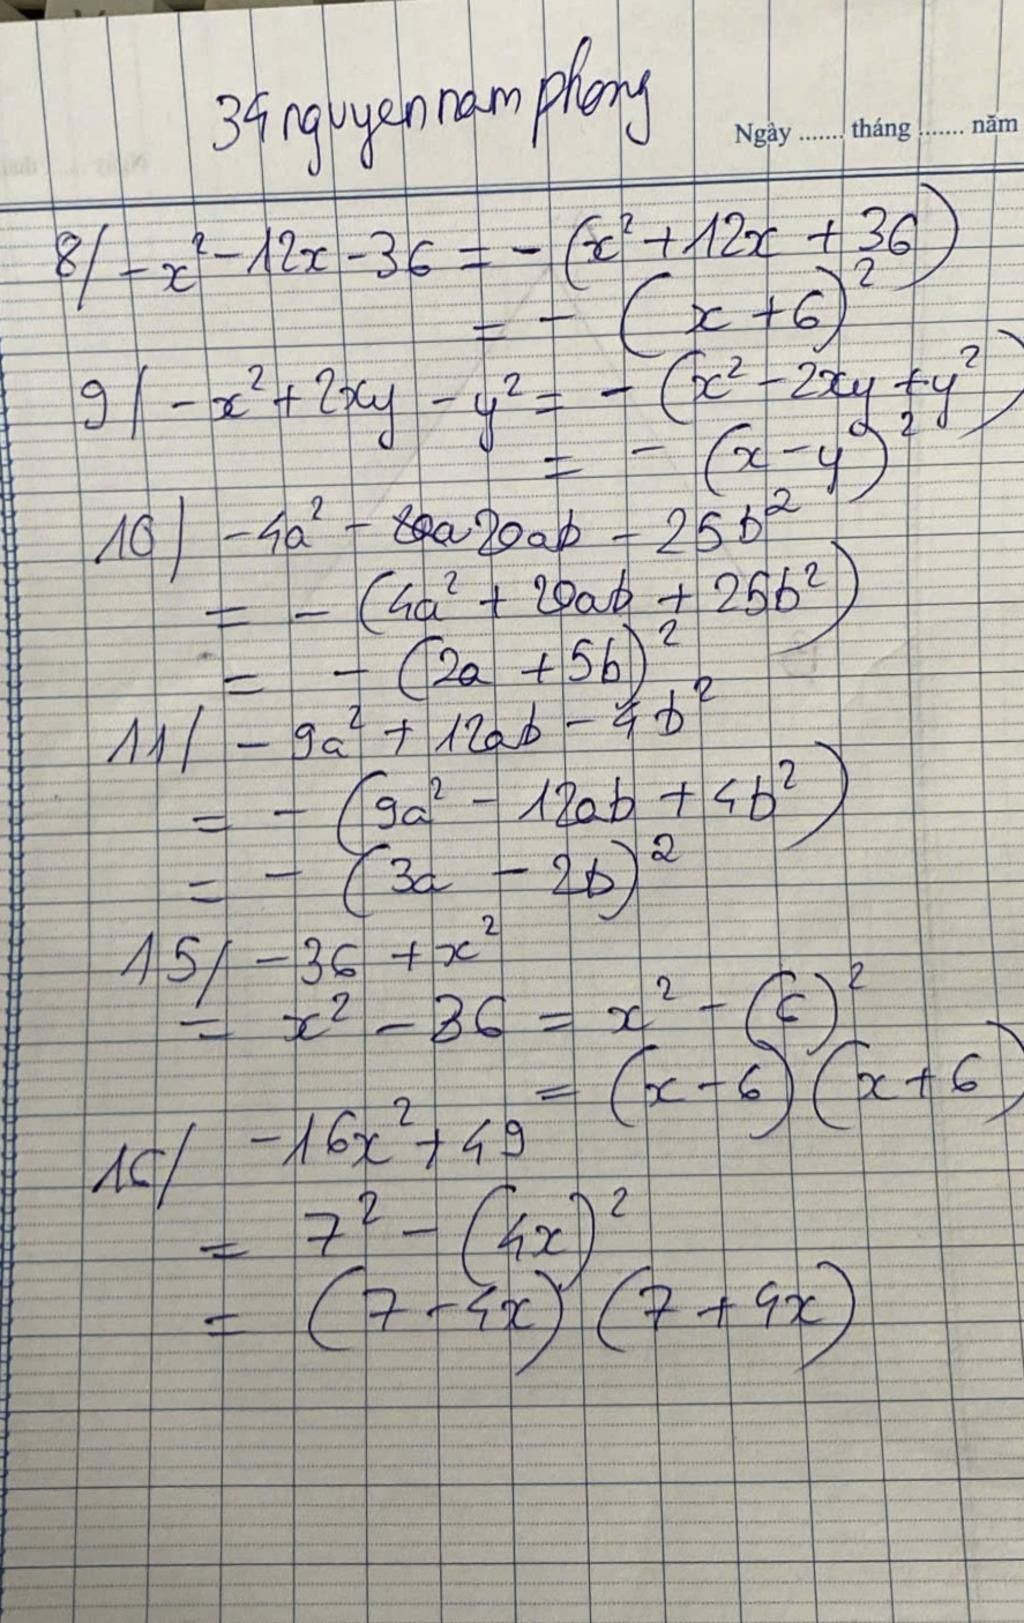 34 nguyen nam phong
Ngày ....... tháng ....... năm
8/ -x² - 12x - 36 = - (x² + 12x + 36)
= - (x + 6)²
9/ -x² + 2xy - y² = - (x² - 2xy + y²)
= - (x - y)²
10/ -4a² - 20ab - 25b²
= - (4a² + 20ab + 25b²)
= - (2a + 5b)²
11/ - 9a² + 12ab - 4b²
= - (9a² - 12ab + 4b²)
= - (3a - 2b)²
15/ - 36 + x²
= x² - 36 = x² - (6)²
= (x - 6) (x + 6)
16/ -16x² + 49
= 7² - (4x)²
= (7 - 4x) (7 + 4x)